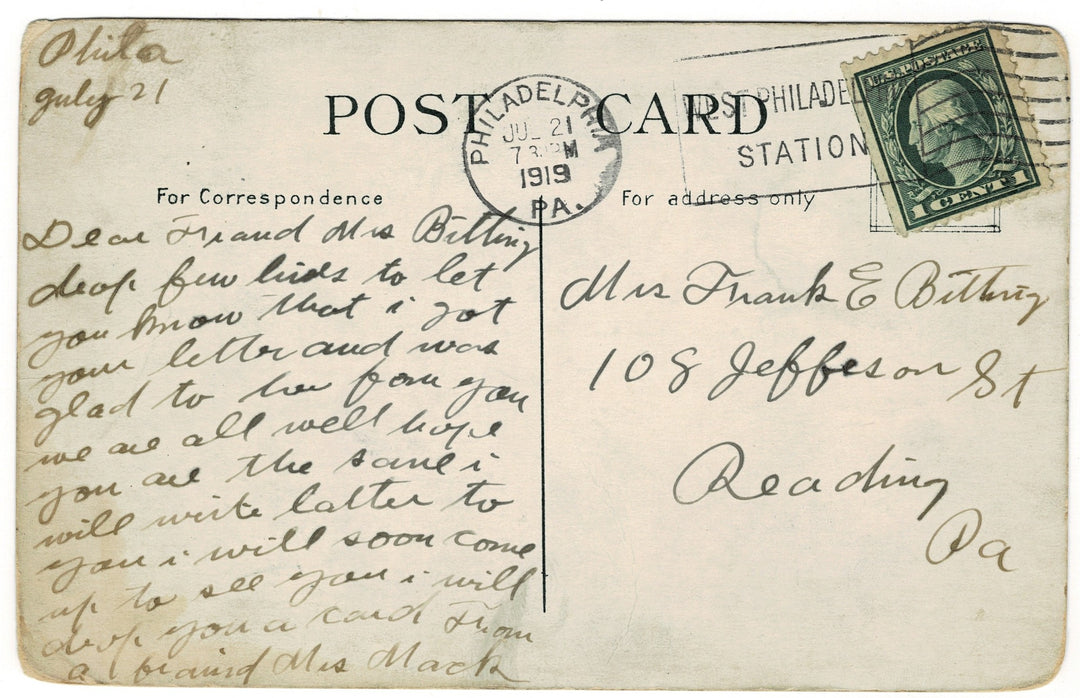 Phila
July 21
POST CARD
PHILADELPHIA
JUL 21
7 3 PM
1919
PA.
WEST PHILADEL
STATION
U.S. POSTAGE
1 CENT 1
For Correspondence
For address only
Dear Friand Mrs Bitting
drop few lines to let
you know that i got
your letter and was
glad to her from you
we are all well hope
you are the same i
will write latter to
you i will soon come
up to see you i will
drop you a card From
a fraind Mrs Mack
Mrs Frank E Bitting
108 Jeffeson St
Reading
Pa